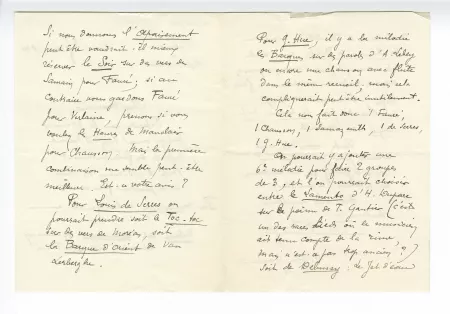 Si nous donnons l'Apaisement
peut-être vaudrait-il mieux
réserver le Soir sur des vers de
Samain pour Fauré ; si au
contraire nous gardons Fauré
pour Verlaine, prenons si vous
voulez les Heures de Mauclair
pour Chausson. Mais la première
combinaison me semble peut-être
meilleure. Est-ce votre avis ?
Pour Louis de Serres on
pourrait prendre soit le Toc-toc
sur les vers de soit
la Barque d'Orient de Van
Lerberghe.
Pour G. Hue, il y a la mélodie
les Barques sur les paroles d'A
ou encore une chanson avec flûte
dans le même recueil, mais cela
compliquerait peut-être inutilement.
Cela nous fait donc 1 Fauré,
1 Chausson, 1 1 de Serres,
1 G. Hue.
On pourrait y ajouter une
6e mélodie pour faire 2 groupes
de 3, et l'on pourrait choisir
entre le Lamento d'H. Duparc
sur le poème de T. Gautier (c'est
un des rares où le musicien
ait tenu compte de la rime,
mais n'est-ce pas trop ancien ?)
soit de Debussy : le Jet d'eau